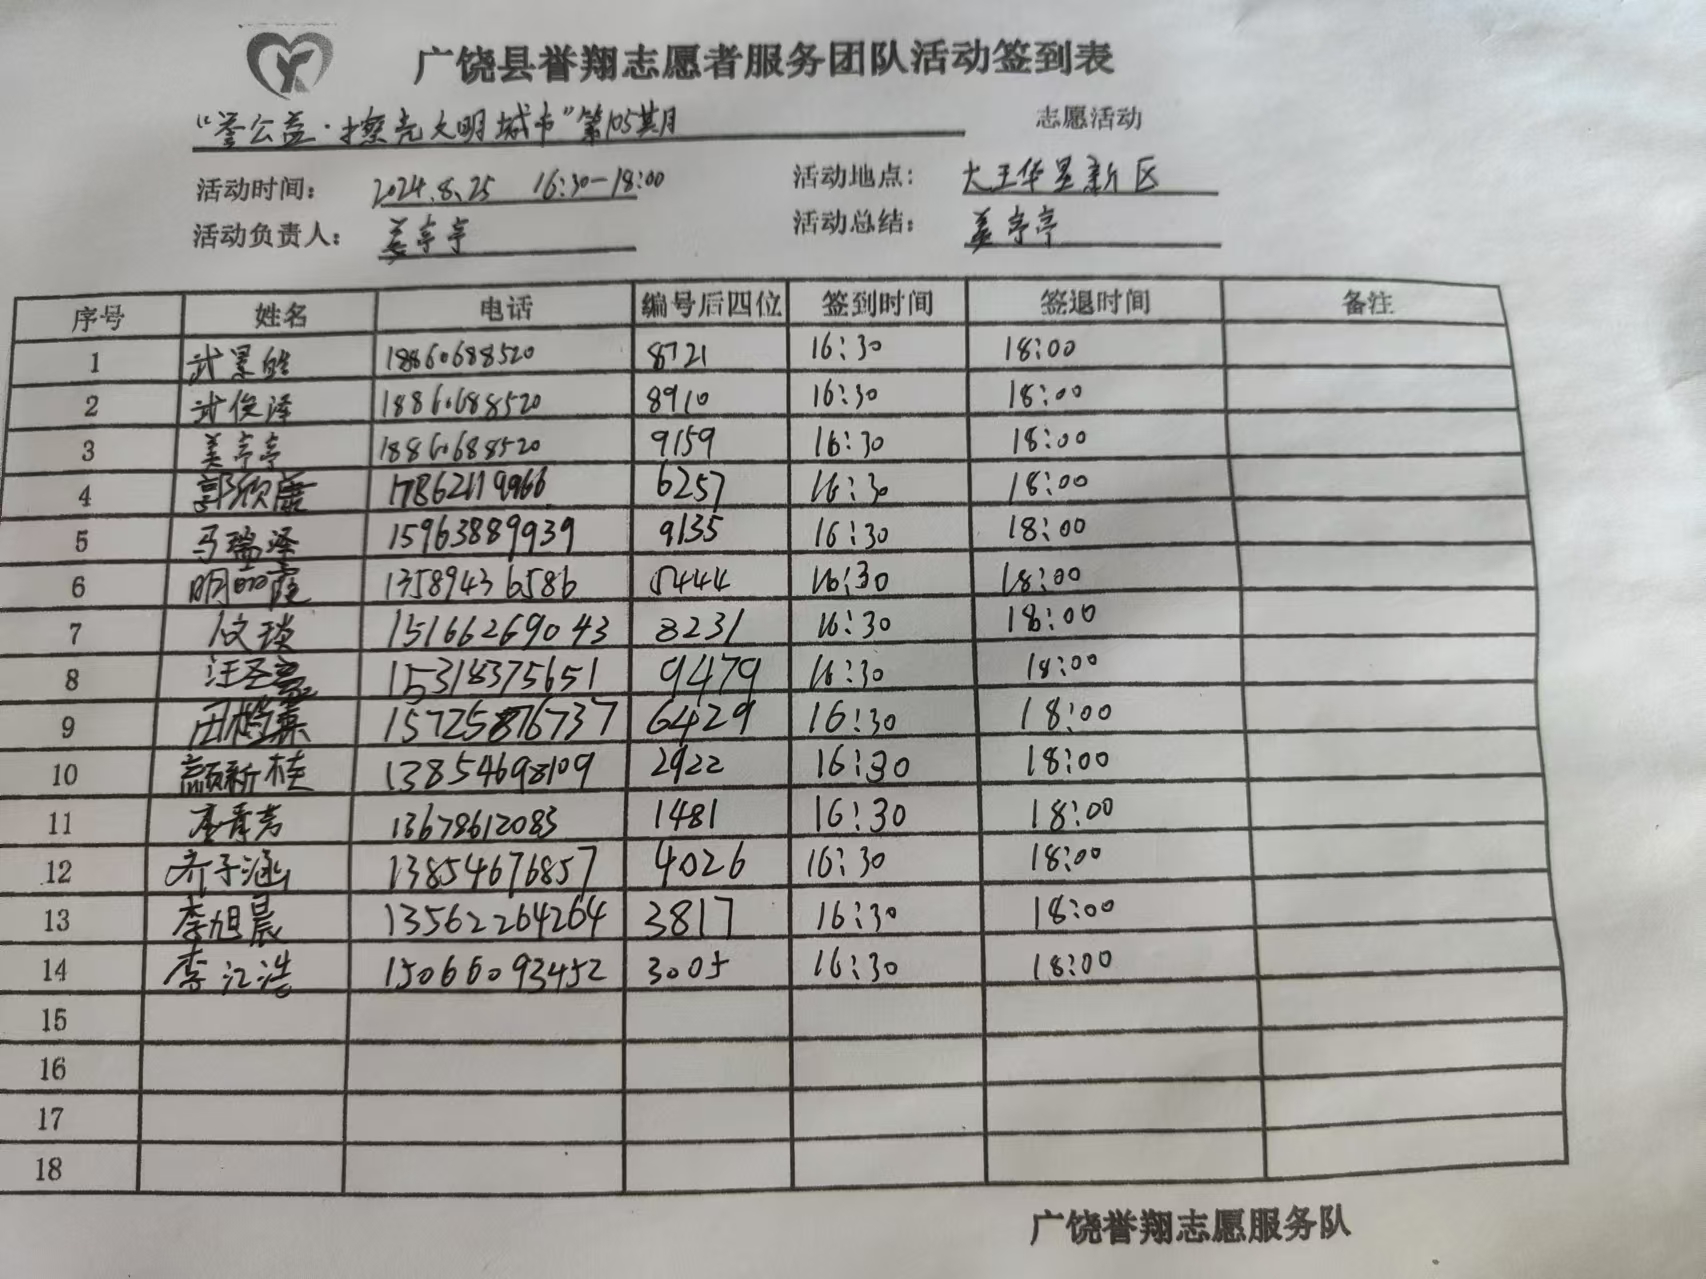 广饶县誉翔志愿者服务团队活动签到表
“誉公益·擦亮文明城市”第105期 志愿活动
活动时间： 2024.8.25 16:30-18:00 活动地点： 大王华星新区
活动负责人： 姜亭亭 活动总结： 姜亭亭
序号 姓名 电话 编号后四位 签到时间 签退时间 备注
1 武景皓 18860688520 8721 16:30 18:00
2 武俊泽 18860688520 8910 16:30 18:00
3 姜亭亭 18860688520 9159 16:30 18:00
4 郭欣康 17862119966 6257 16:30 18:00
5 马瑞泽 15963889939 9135 16:30 18:00
6 明霞 13589436586 5444 16:30 18:00
7 15166269043 8231 16:30 18:00
8 汪圣 15318375651 9479 16:30 18:00
9 田 15725876737 6429 16:30 18:00
10 颜新桂 13854698109 2922 16:30 18:00
11 13678612083 1481 16:30 18:00
12 齐子涵 13854676857 4026 16:30 18:00
13 李旭晨 13562264264 3817 16:30 18:00
14 李江浩 15066093452 3005 16:30 18:00
15
16
17
18
广饶誉翔志愿服务队